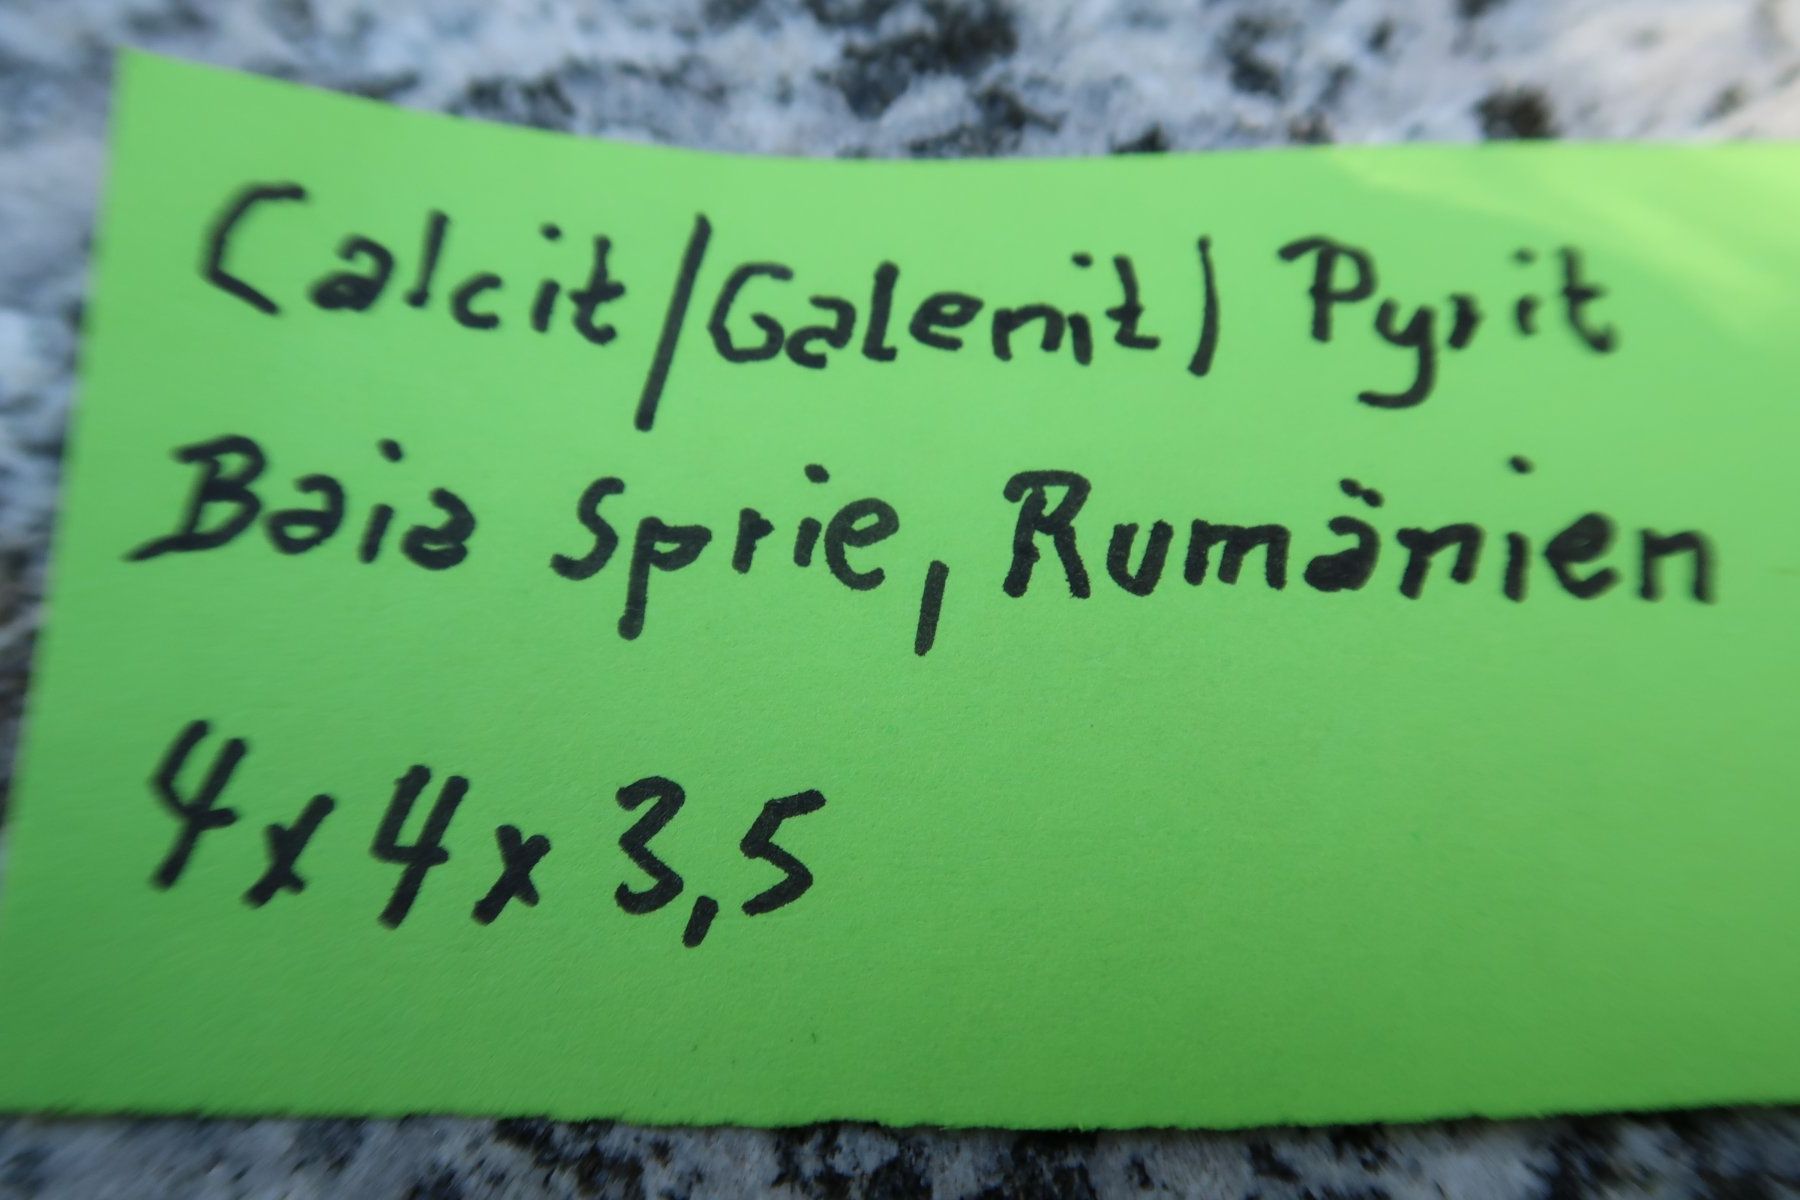 Calcit/Galenit/Pyrit
Baia Sprie, Rumänien
4x4x3,5